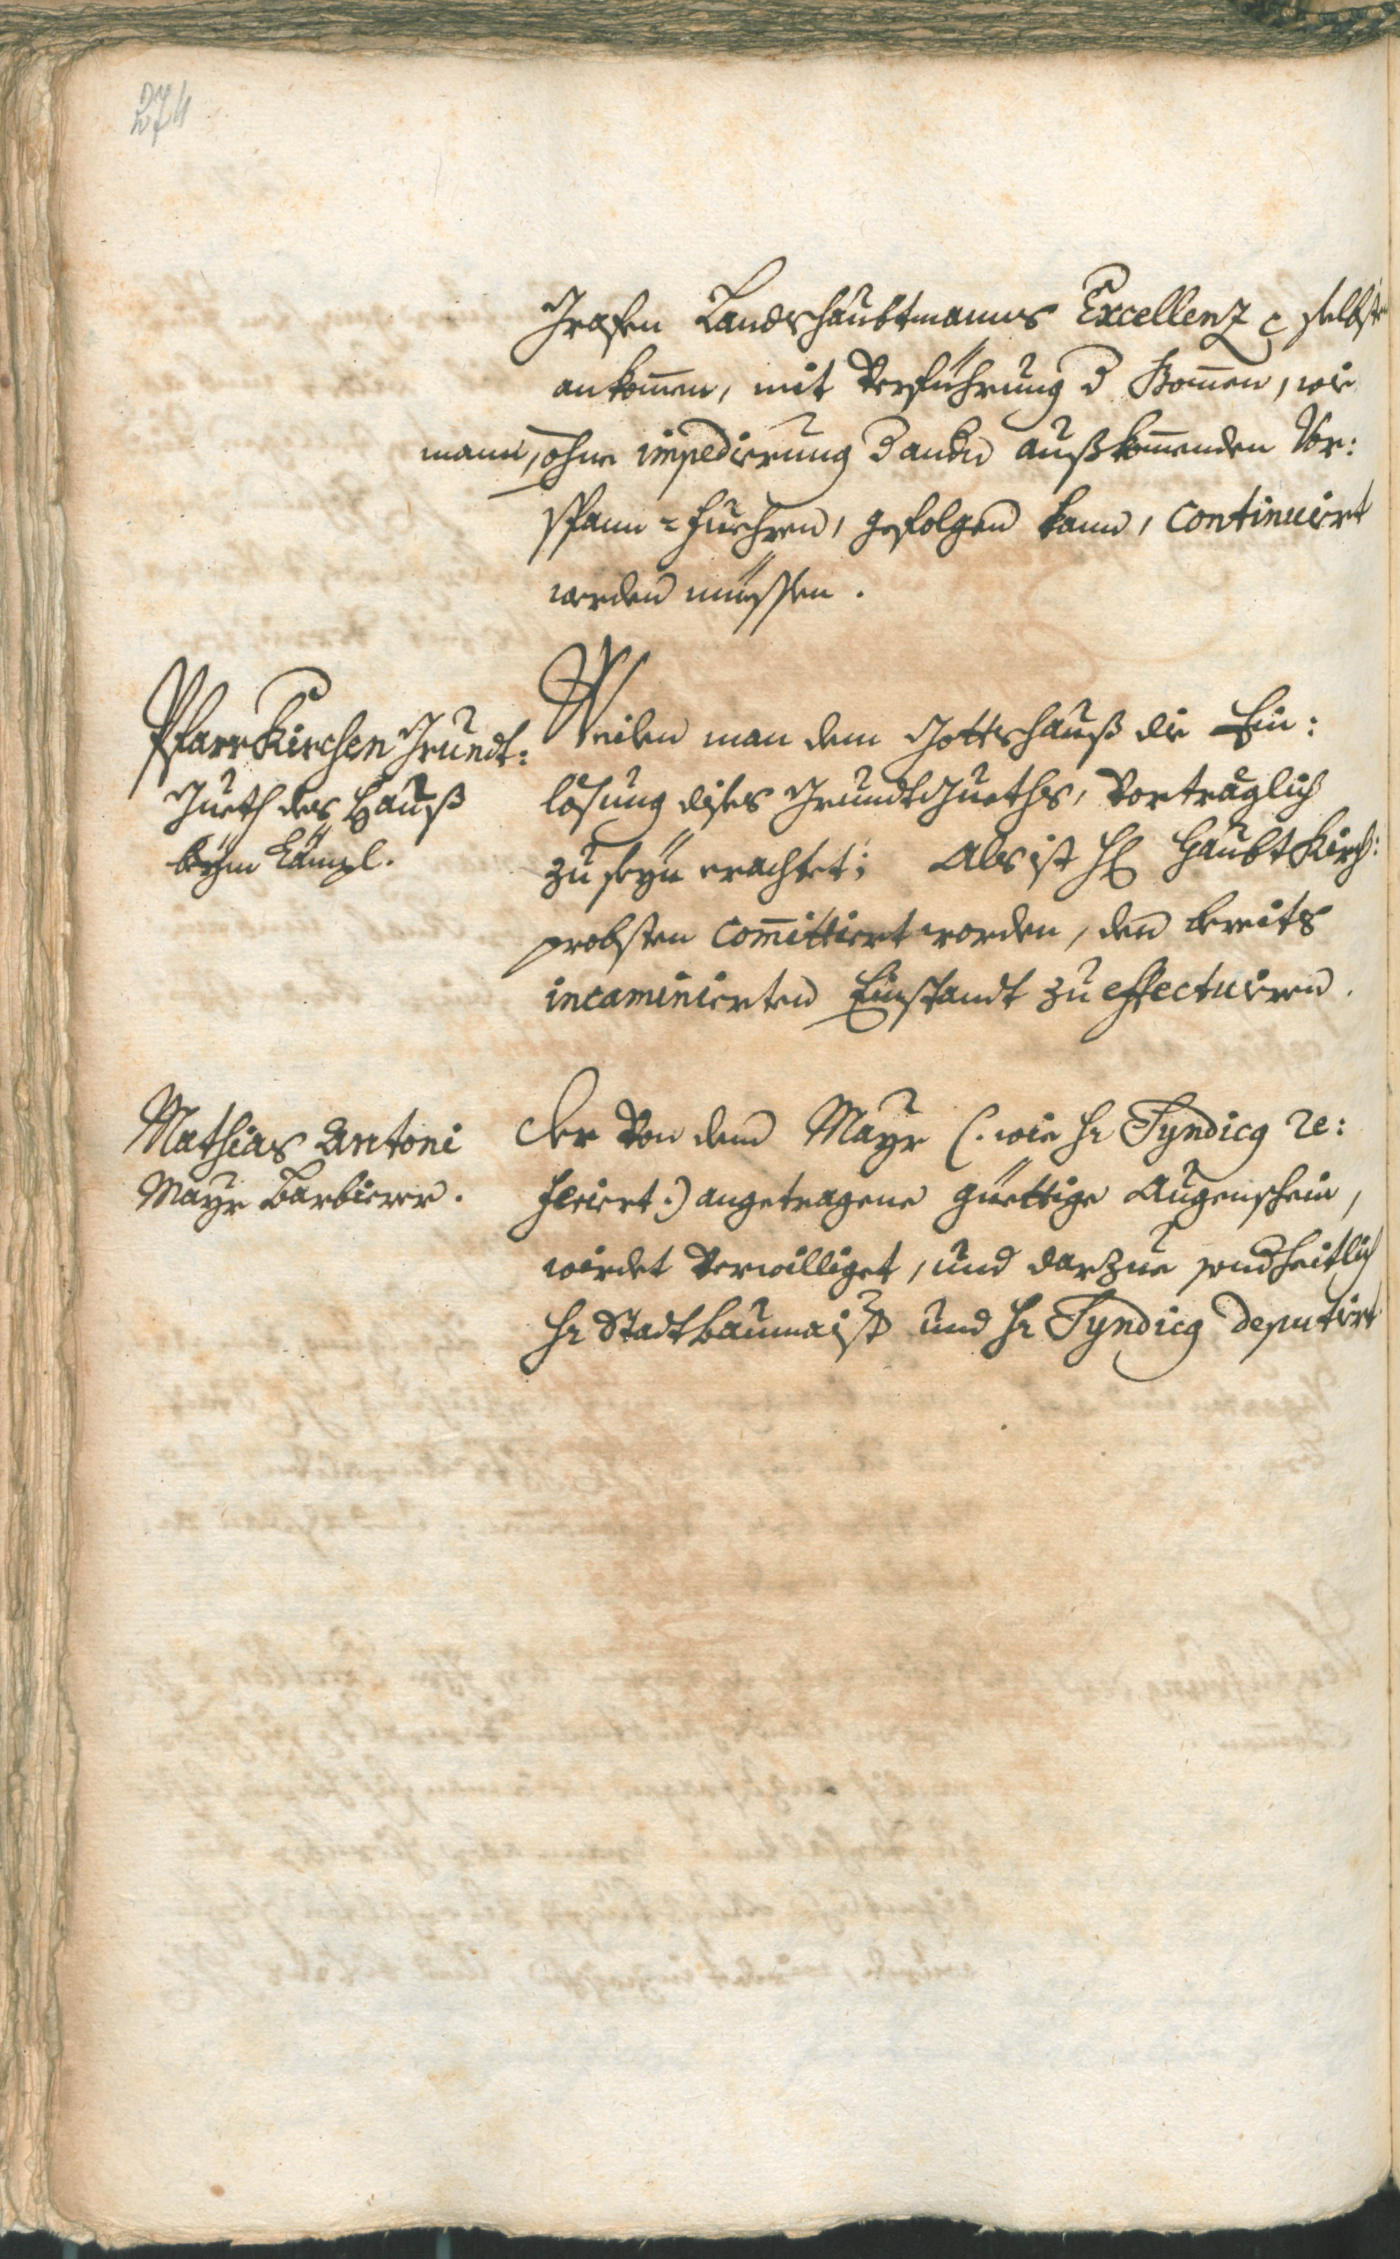 274
Grafen Landtshaubtmanns Excellenz selbst
ankom̄en, mit Verführung d Bom̄en, wie
mann, ohne impedierung d andn außkom̄enden Vor:
spann-Fuehren, gefolgen kann, continuiert
werden müessen.
PfarrKirchen Grundt-
Gueth des Hauß
beÿm Lämpl.
Weilen man dem Gottshauß die Ein:
lösung dises Grundtgueths, Vorträglich
zu seÿn erachtet; Als ist H Haubt Kirch:
probsten com̄ittiert worden, den bereits
incaminierten Einstandt zu effectuiren.
Mathias Antoni
Mayr Barbierer.
Der Von dem Mayr (: wie Hr Syndicq re:
feriert :) angetragene güettige Augenschein,
wirdet Verwilliget, und darzue
Hr Stadtbaumaistr und Hr Syndicq deputiert